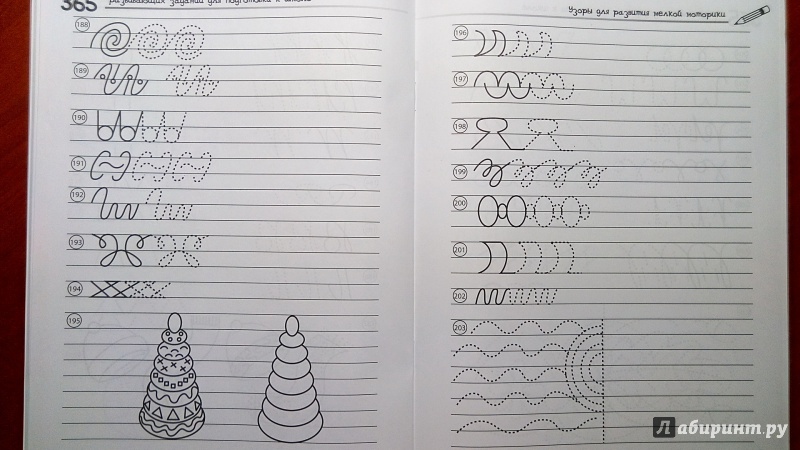 365 развивающих заданий для подготовки к школе
188
189
190
191
192
193
194
195
Узоры для развития мелкой моторики
196
197
198
199
200
201
202
203
Лабиринт.ру